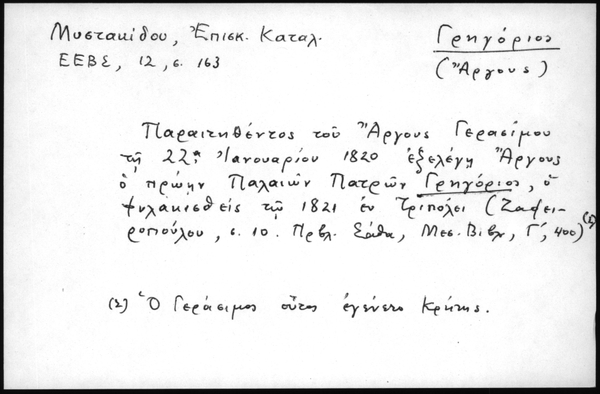 Μυστακίδου, Ἐπισκ. Καταλ.
ΕΕΒΣ, 12, σ. 163
Γρηγόριος
(Ἄργους)
Παραιτηθέντος τοῦ Ἄργους Γερασίμου
τῇ 22ᾳ Ἰανουαρίου 1820 ἐξελέγη Ἄργους
ὁ πρώην Παλαιῶν Πατρῶν Γρηγόριος, ὁ
φυλακισθεὶς τῷ 1821 ἐν Τριπόλει (Ζαφει-
ροπούλου, σ. 10. Πρβλ. Σάθα, Μεσ. Βιβλ, Γ΄, 400)(2)
(2) Ὁ Γεράσιμος οὗτος ἐγένετο Κρήτης.